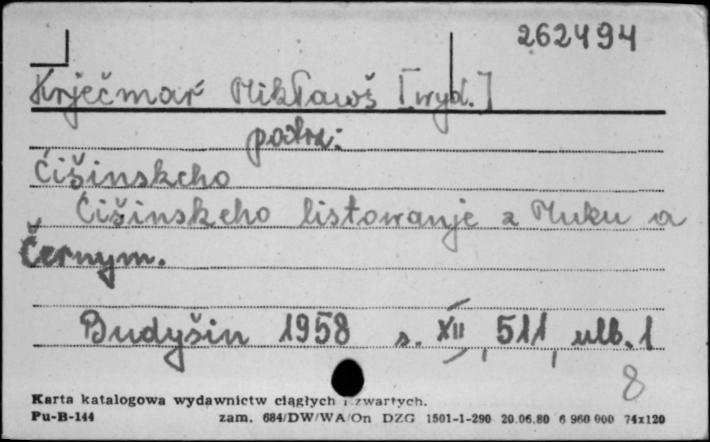 262494
Krječmaŕ Mikławš [wyd.]
patrz:
Ćišinskeho
Ćišinskeho listowanje z Muku a
Černym.
Budyšin 1958 s. XII, 511, ulb. 1
8
Karta katalogowa wydawnictw ciągłych i zwartych.
Pu-B-144 zam. 684/DW/WA/On DZG 1501-1-290 20.06.80 6 960 000 74x120